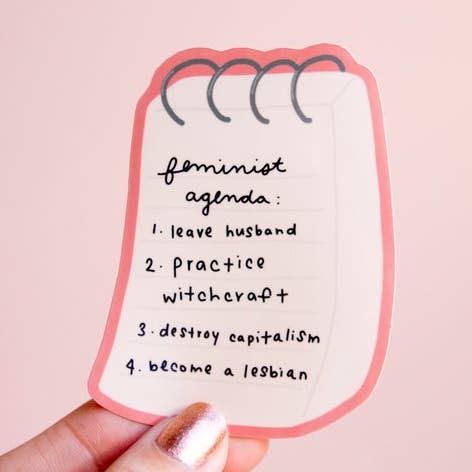 feminist
agenda:
1. leave husband
2. practice
witchcraft
3. destroy capitalism
4. become a lesbian